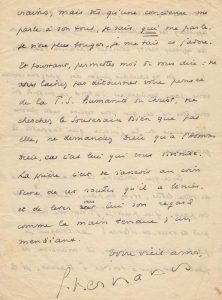 vraiment, mais dès qu'une conscience me
parle à son tour, je sais qui me parle
je n'ose plus songer, je me tais et j'adore.
Et pourtant, permettez moi de vous dire : ne
vous laissez pas détourner votre pensée
de la T.S. Humanité du Christ, ne
cherchez le Souverain Bien que par
elle, ne demandez Dieu qu'à l'homme
Dieu, car c'est lui qui vous
La prière, c'est de s'asseoir au coin
d'une de ces routes qu'il a
et de lever vers lui son regard
comme la main tendue d'un
mendiant.
Votre vieil ami,
G Bernanos